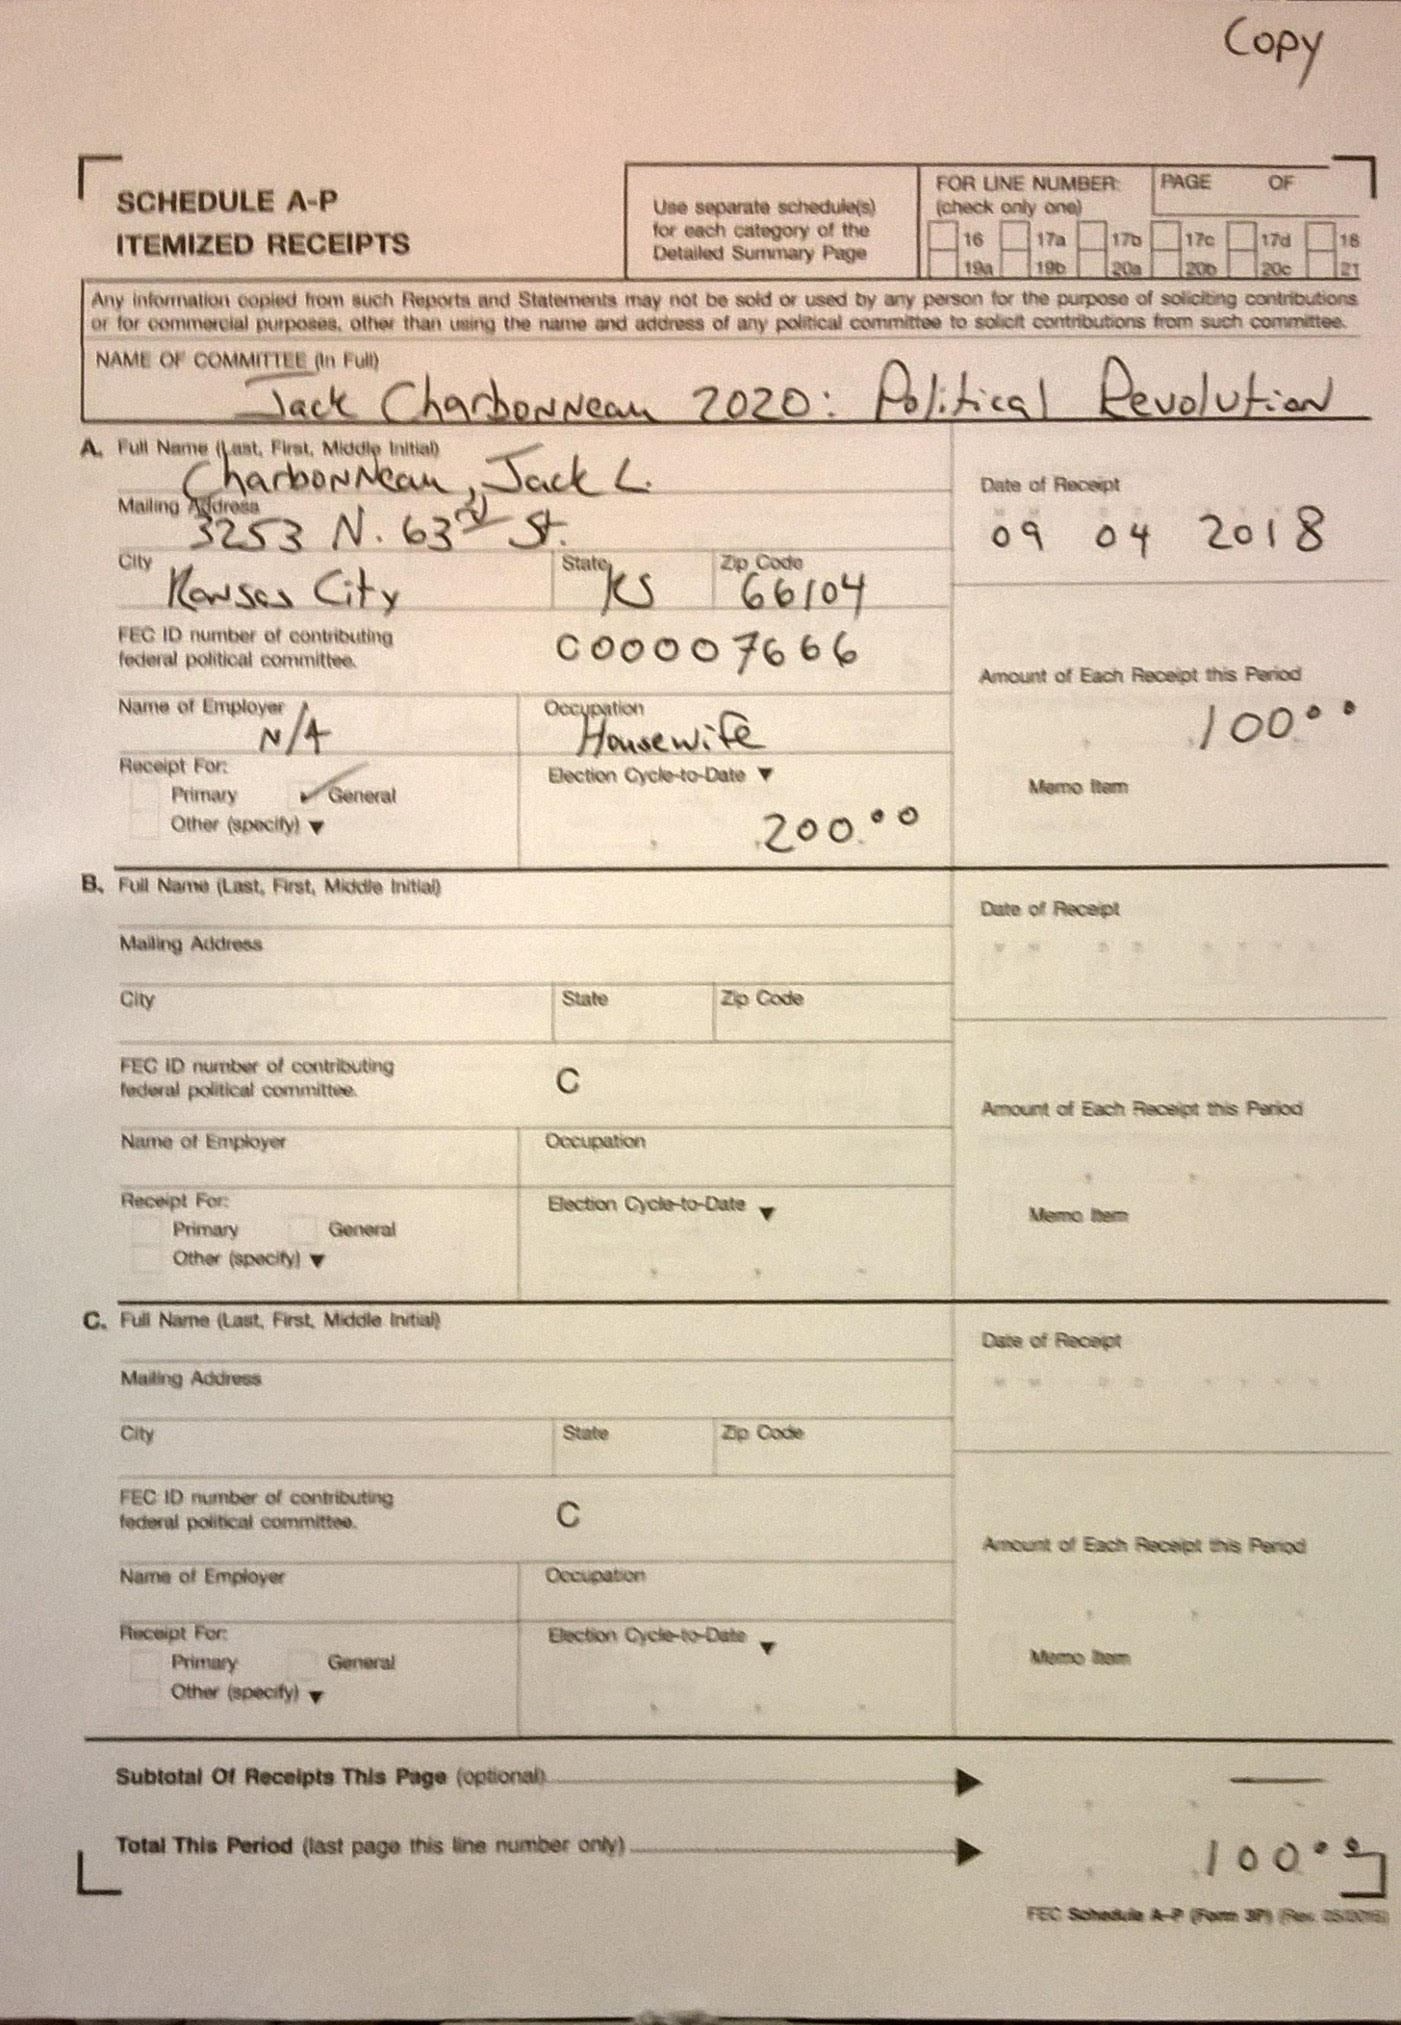 Copy
SCHEDULE A-P
ITEMIZED RECEIPTS
Use separate schedule(s)
for each category of the
Detailed Summary Page
FOR LINE NUMBER:
(check only one)
PAGE OF
16 17a 17b 17c 17d 18
19a 19b 20a 20b 20c 21
Any information copied from such Reports and Statements may not be sold or used by any person for the purpose of soliciting contributions
or for commercial purposes, other than using the name and address of any political committee to solicit contributions from such committee.
NAME OF COMMITTEE (In Full)
Jack Charbonneau 2020: Political Revolution
A. Full Name (Last, First, Middle Initial)
Charbonneau, Jack L.
Mailing Address
3253 N. 63rd St.
City State Zip Code
Kansas City KS 66104
Date of Receipt
09 04 2018
FEC ID number of contributing
federal political committee.
C00007666
Amount of Each Receipt this Period
100.00
Name of Employer
N/A
Occupation
Housewife
Receipt For:
Primary ✓ General
Other (specify) ▼
Election Cycle-to-Date ▼
200.00
Memo Item
B. Full Name (Last, First, Middle Initial)
Date of Receipt
Mailing Address
City State Zip Code
FEC ID number of contributing
federal political committee.
C
Amount of Each Receipt this Period
Name of Employer
Occupation
Receipt For:
Primary General
Other (specify) ▼
Election Cycle-to-Date ▼
Memo Item
C. Full Name (Last, First, Middle Initial)
Date of Receipt
Mailing Address
City State Zip Code
FEC ID number of contributing
federal political committee.
C
Amount of Each Receipt this Period
Name of Employer
Occupation
Receipt For:
Primary General
Other (specify) ▼
Election Cycle-to-Date ▼
Memo Item
Subtotal Of Receipts This Page (optional) —
Total This Period (last page this line number only) 100.00
FEC Schedule A-P (Form 3P) (Rev. 05/2016)